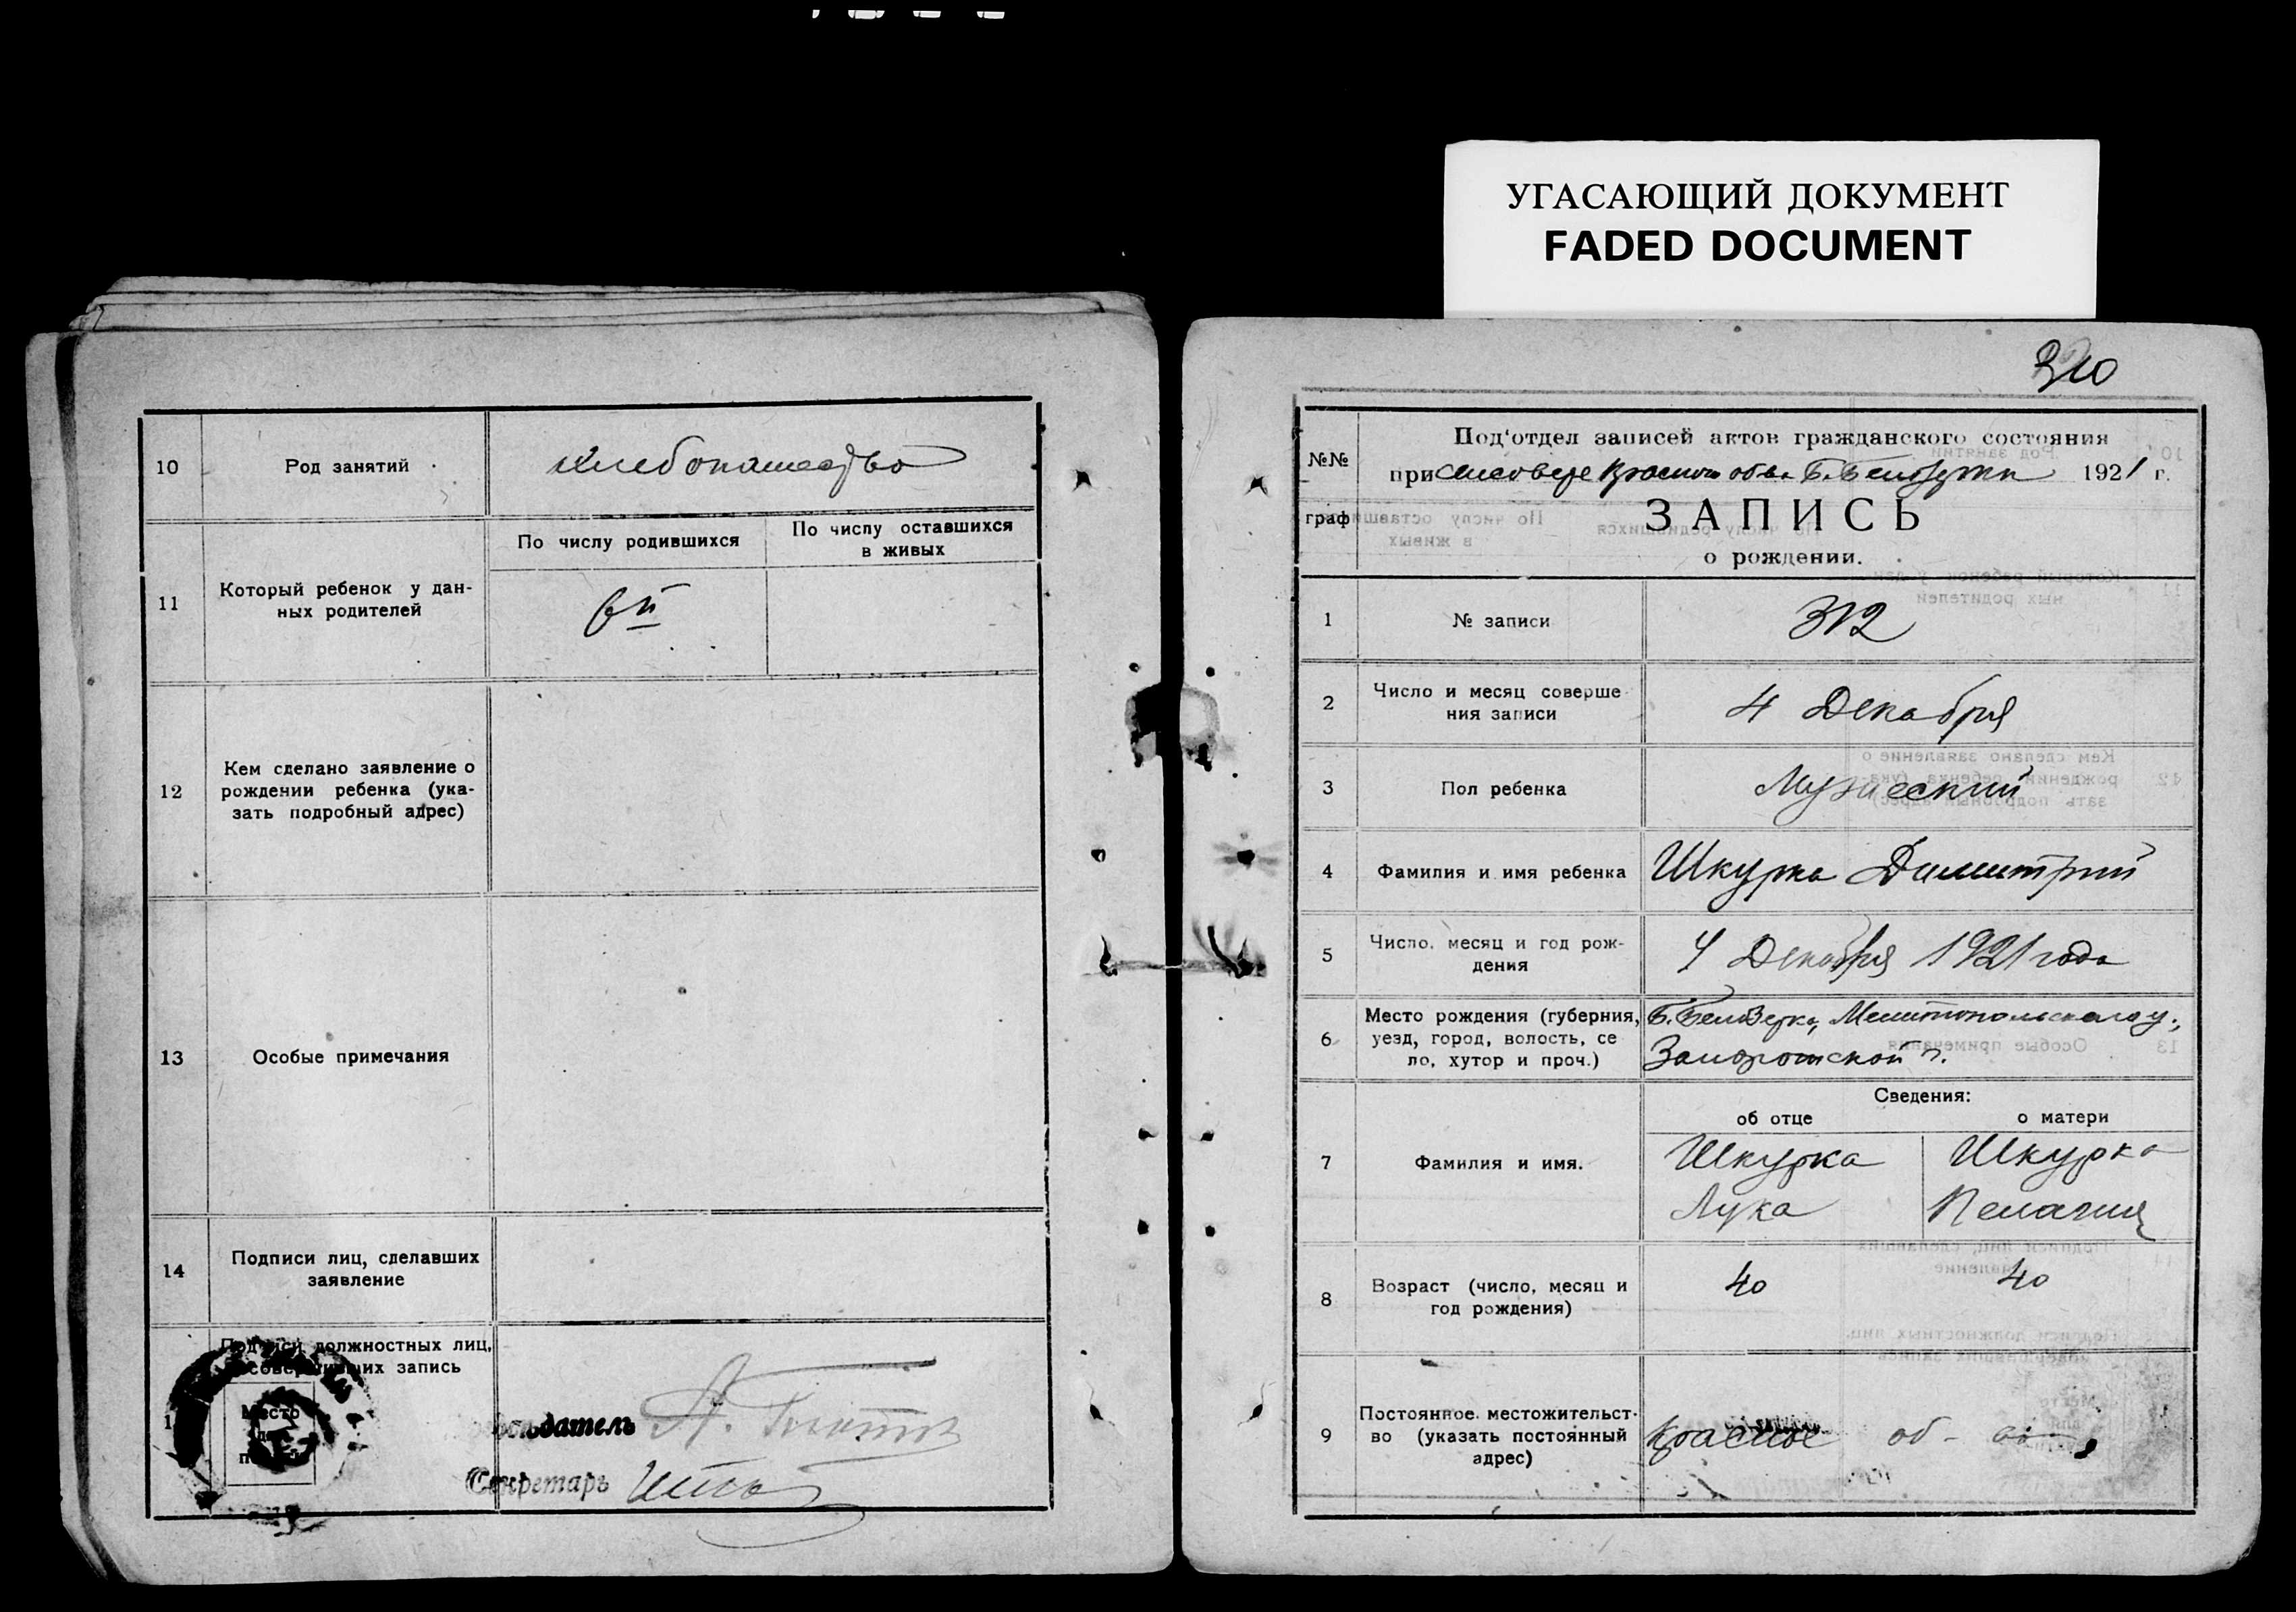 УГАСАЮЩИЙ ДОКУМЕНТ
FADED DOCUMENT
10
Род занятий
хлебопашество
11
Который ребенок у дан-
ных родителей
По числу родившихся
По числу оставшихся
в живых
6й
12
Кем сделано заявление о
рождении ребенка (ука-
зать подробный адрес)
13
Особые примечания
14
Подписи лиц, сделавших
заявление
Подписи должностных лиц,
совершивших запись
Место
для
Секретарь
320
№№
граф
Под'отдел записей актов гражданского состояния
при Б. Белозерки 1921 г.
ЗАПИСЬ
о рождении.
1
№ записи
312
2
Число и месяц соверше
ния записи
4 Декабря
3
Пол ребенка
Мужеский
4
Фамилия и имя ребенка
Шкурка Димитрий
5
Число, месяц и год рож-
дения
4 Декабря 1921 года
6
Место рождения (губерния,
уезд, город, волость, се
ло, хутор и проч.)
Б. Белозерка, Мелитопольскаго у.,
Запорожской г.
Сведения:
об отце
о матери
7
Фамилия и имя.
Шкурка
Лука
Шкурка
Пелагия
8
Возраст (число, месяц и
год рождения)
40
40
9
Постоянное местожительст-
во (указать постоянный
адрес)
Красное об-во